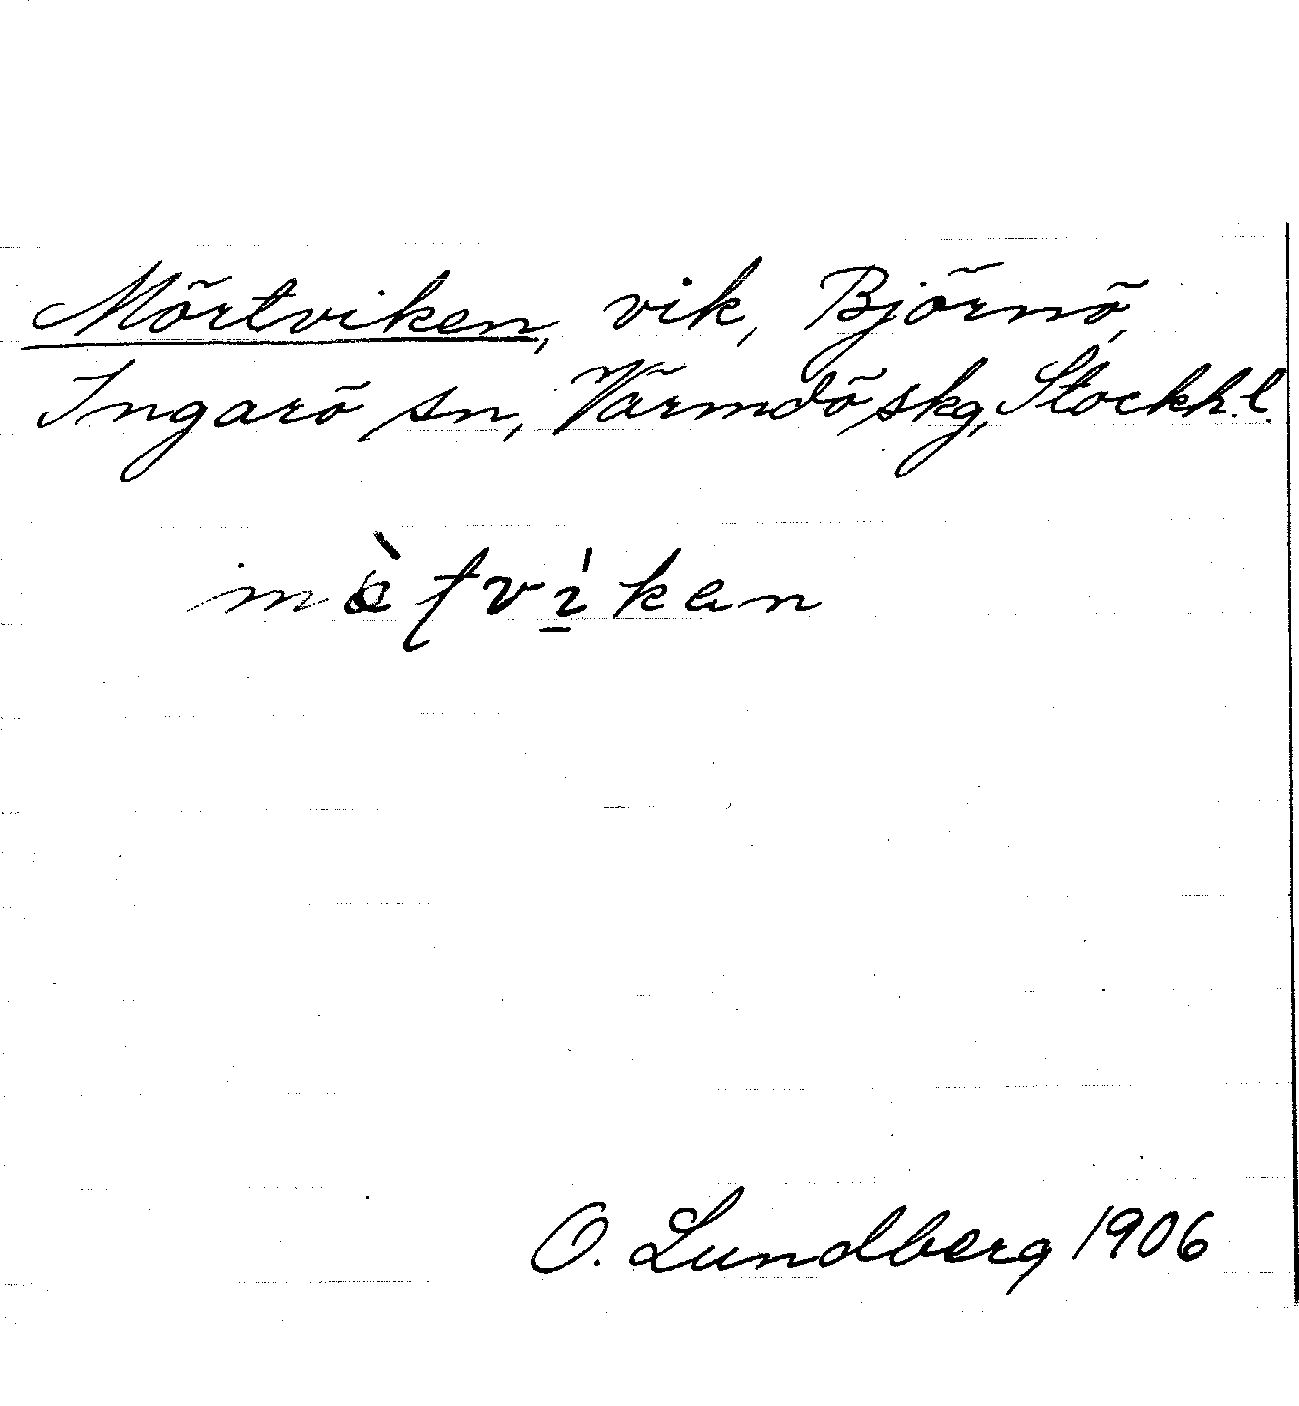 Mörtviken, vik, Björnö,
Ingarö sn, Värmdö skg, Stockh. l.
O. Lundberg 1906